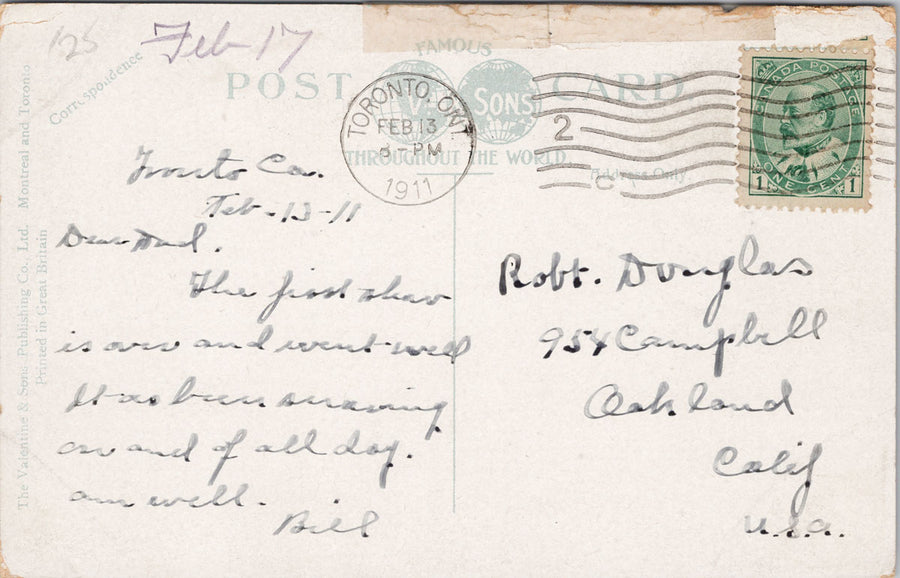 125 Feb 17
Correspondence
FAMOUS
POST CARD
SONS
THROUGHOUT THE WORLD.
Address Only.
TORONTO, ONT
FEB 13
8-PM
1911
2
CANADA POSTAGE
ONE CENT
1 1
Tronto Ca.
Feb-13-11
Dear Dad.
The first show
is over and went well
It has been snowing
on and off all day.
am well.
Bill
Robt. Douglas
954 Campbell
Oakland
Calif
U.S.A.
The Valentine & Sons Publishing Co., Ltd. Montreal and Toronto
Printed in Great Britain